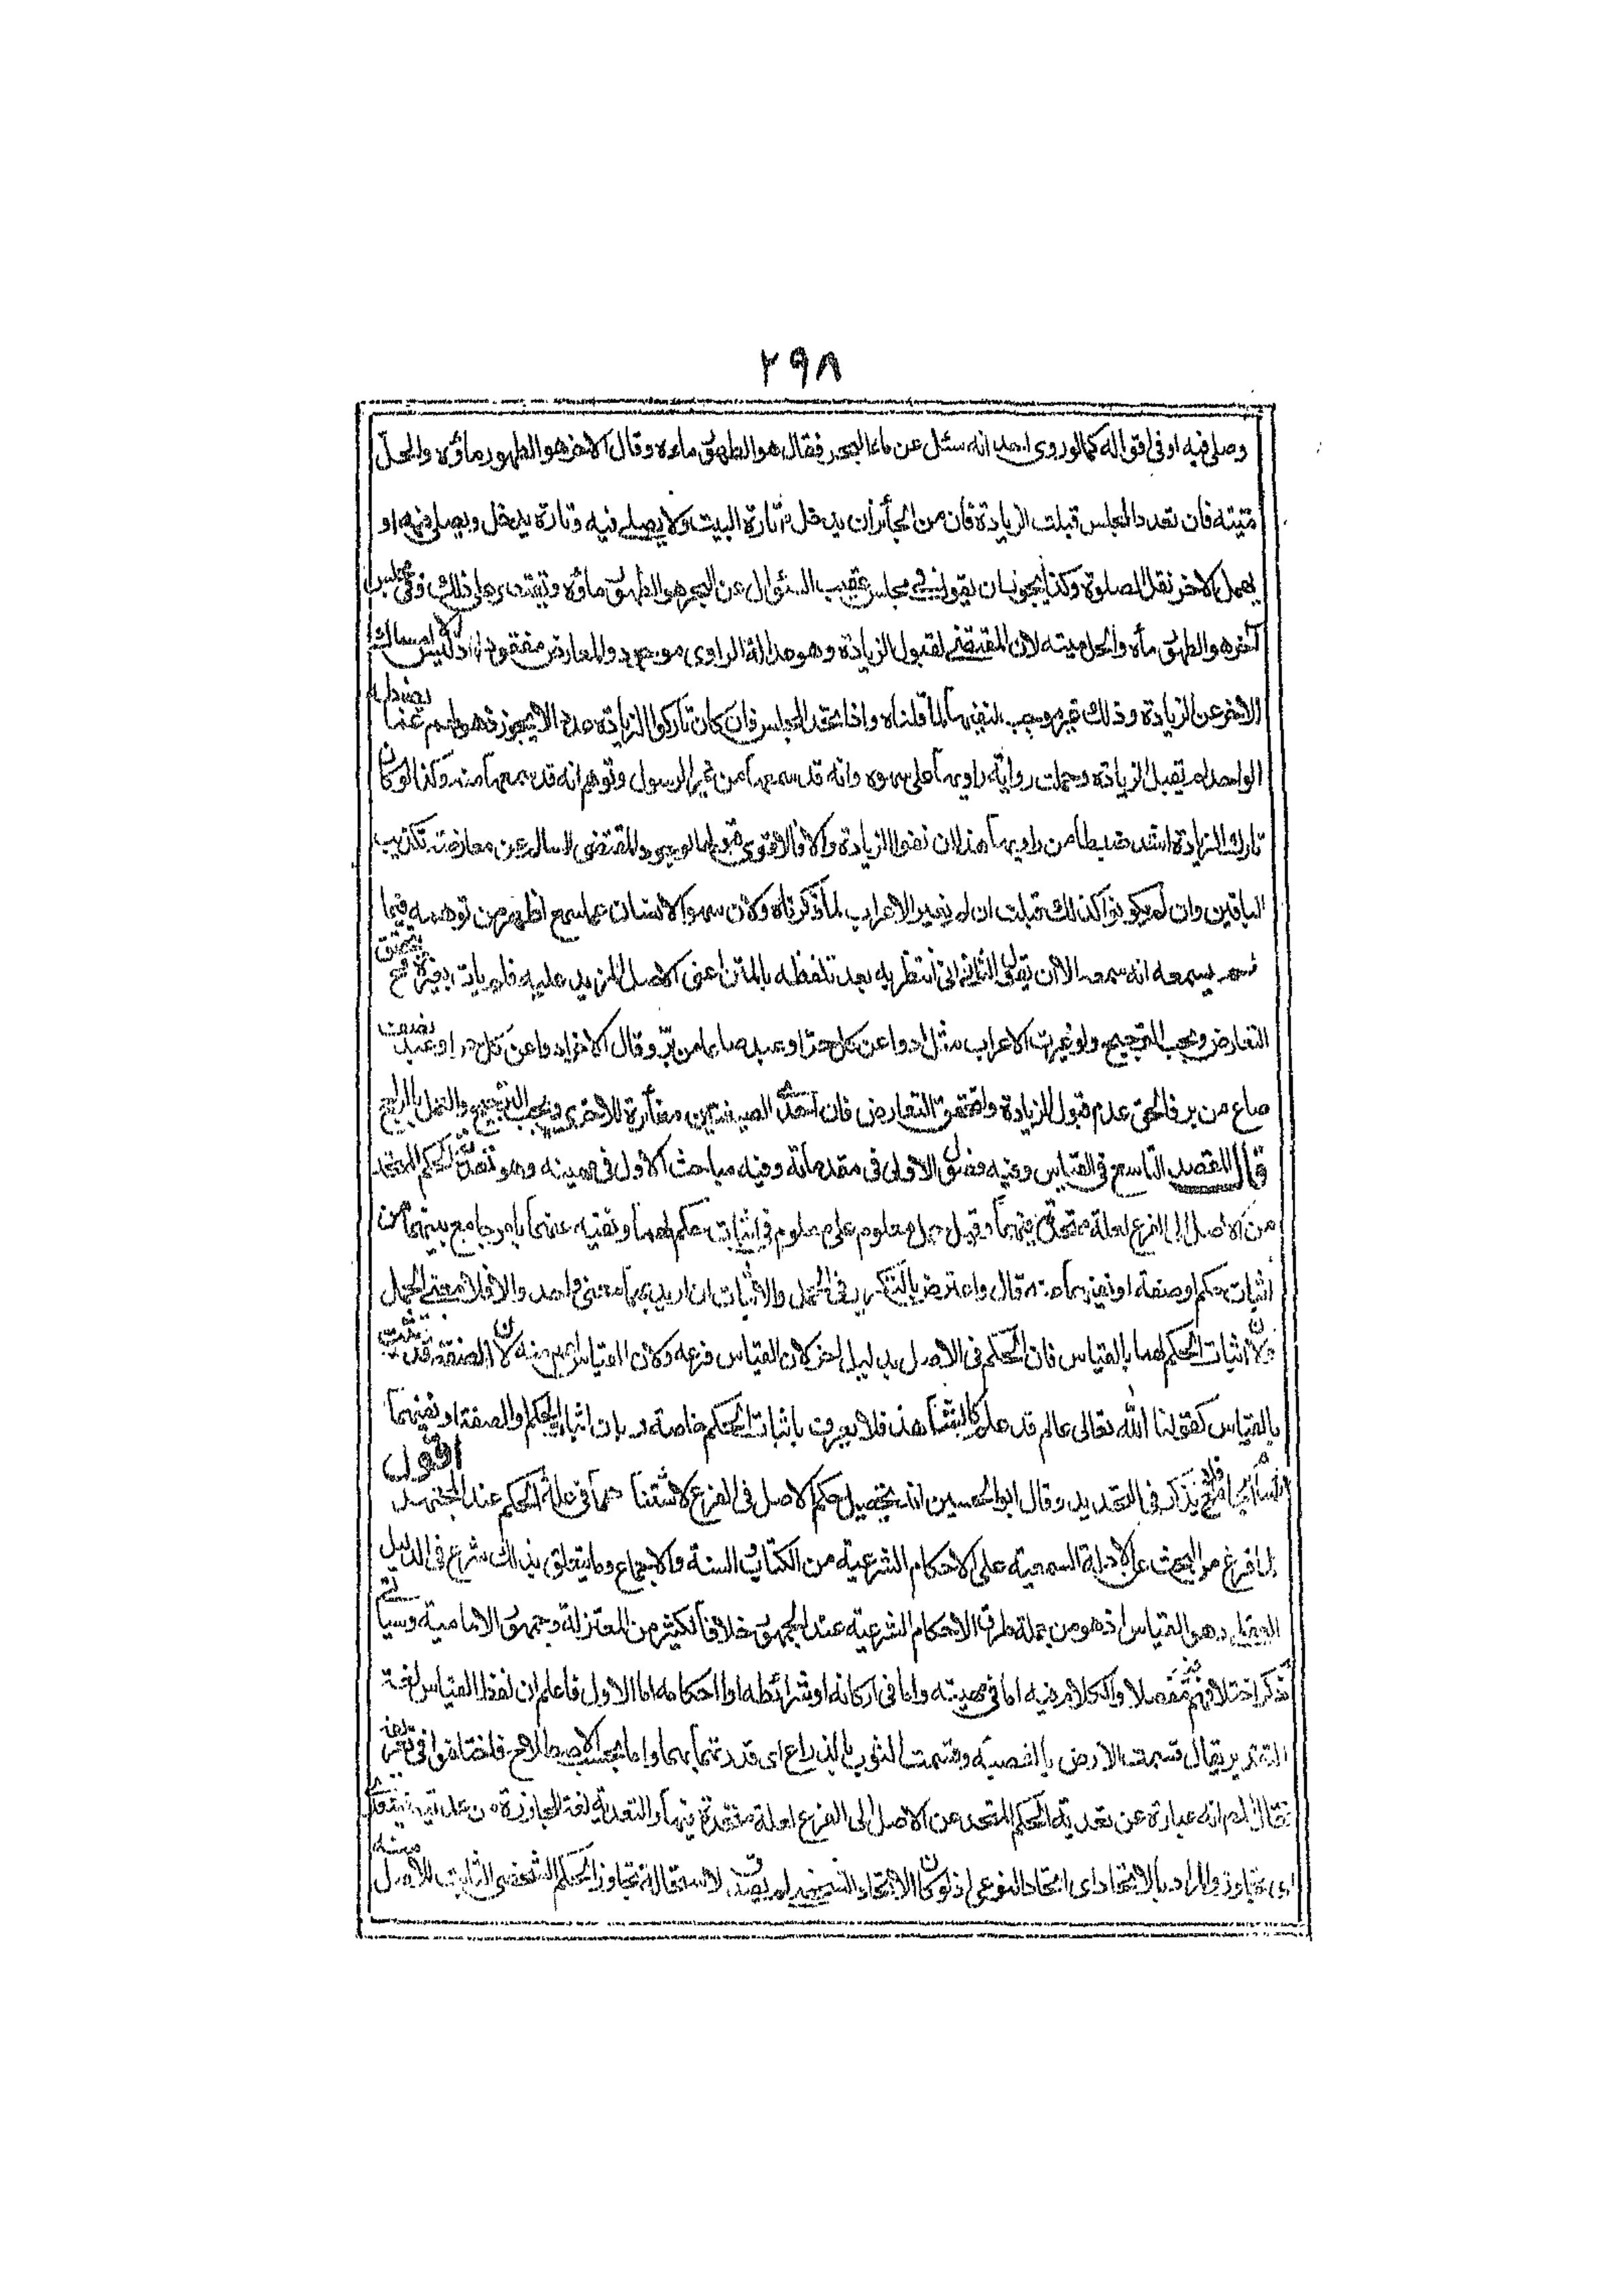 ٢٩٨
وصلى فيه او فى اقواله كما لو روى احد انه سئل عن ماء البحر فقال هو الطهور ماءه وقال الاخر هو الطهور ماؤه والحل
ميتته فان تعدد المجلس قبلت الزيادة فان من الجائز ان يدخل تارة البيت ولا يصلى فيه وتارة يدخل ويصلى فيه او
يهمل الاخر نقل الصلوة وكذا يجوز ان يقول فى مجلس عقيب السئوال عن البحر هو الطهور ماؤه ويقتصر على ذلك وفى مجلس
آخر هو الطهور مأه والحل ميتته لان المقتضى لقبول الزيادة وهو عدالة الراوى موجود والمعارض مفقود اذ ليس الا امساك
الاخر عن الزيادة وذلك غير موجب لنفيها لما قلناه واذا اتحد المجلس فان كان تاركوا الزيادة عددا لا يجوز ذهولهم عما يضبطه
الواحد لم تقبل الزيادة وحملت رواية راويها على سهوه وانه قد سمعها من غير الرسول وتوهم انه قد سمعها منه وكذا لو كان
تارك الزيادة اشد ضبطا من راويها هذا ان نفوا الزيادة والا فالاقوى قبولها لوجود المقتضى السالم عن معارضة تكذيب
الباقين وان لم يكونوا كذلك قبلت ان لم يغير الاعراب لما ذكرناه ولان سهو الانسان عما سمع اظهر من توهمه فيما
لم يسمعه انه سمعه الا ان يقول الثانى انى انتظر به بعد تلفظه بالمتن اعنى الاصل المزيد عليه فلم يات بغيره فح يتحقق
التعارض ويجب الترجيح ولو غيرت الاعراب مثل ادوا عن كل حر او عبد صاعا من بر وقال الاخر ادوا عن كل حر او عبد نصف
صاع من بر فالحق عدم قبول الزيادة والتحقق التعارض فان احدى الصيغتين مغائرة للاخرى ويجب الترجيح والعمل بالراجح
قال المقصد التاسع فى القياس وفيه فصول الاول فى مقدماته وفيه مباحث الاول فى مهيته وهو تعدية الحكم المتحد
من الاصل الى الفرع لعلة متحدة فيهما وقيل حمل معلوم على معلوم فى اثبات حكم لهما او نفيه عنهما بامر جامع بينهما من
اثبات حكم او صفة او نفيهما عنه قال واعترض بالتكرير فى الحمل والاثبات ان اريد بهما معنى واحد والا فلا معنى للحمل
ولان اثبات الحكم لهما بالقياس فان الحكم فى الاصل بدليل اخر لان القياس فرعه ولان القياس اعم منه لان الصفة قد تثبت
بالقياس كقولنا الله تعالى عالم فله علم كالشاهد فلا يعرف باثبات الحكم خاصة وبان اثبات الحكم او الصفة او نفيهما
فلم يذكر فى التحديد وقال ابو الحسين انه تحصيل حكم الاصل فى الفرع لاشتباههما فى علة الحكم عند المجتهد اقول
لما فرغ من البحث عن الادلة السمعية على الاحكام الشرعية من الكتاب والسنة والاجماع وما يتعلق بذلك شرع فى الدليل
العقلى وهو القياس اذ هو من جملة طرق الاحكام الشرعية عند الجمهور خلافا لكثير من المعتزلة وجمهور الامامية وسيأتى
ذكر اختلافهم مفصلا والكلام فيه اما فى مهيته واما فى اركانه او شرائطه او احكامه اما الاول فاعلم ان لفظ القياس لغة
التقدير يقال قست الارض بالقصبة وقست الثوب بالذراع اى قدرتهما بهما واما بحسب الاصطلاح فاختلفوا فى تعريفه
فقال المص انه عبارة عن تعدية الحكم المتحد عن الاصل الى الفرع لعلة متحدة فيهما والتعدية لغة المجاوزة من عديته فتعدى
اى تجاوز والمراد بالاتحاد اى اتحاد النوعى اذ لو كان الاتحاد الشخصى لم يصدق لاستحالة تجاوز الحكم الشخصى الثابت للاصل منه